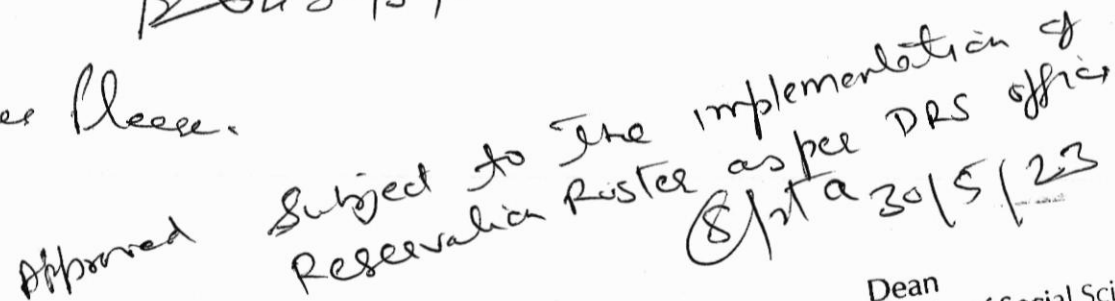 Please.
Approved Subject to the implementation of
Reservation Roster as per DRS office
30/5/23
Dean
Social Sci